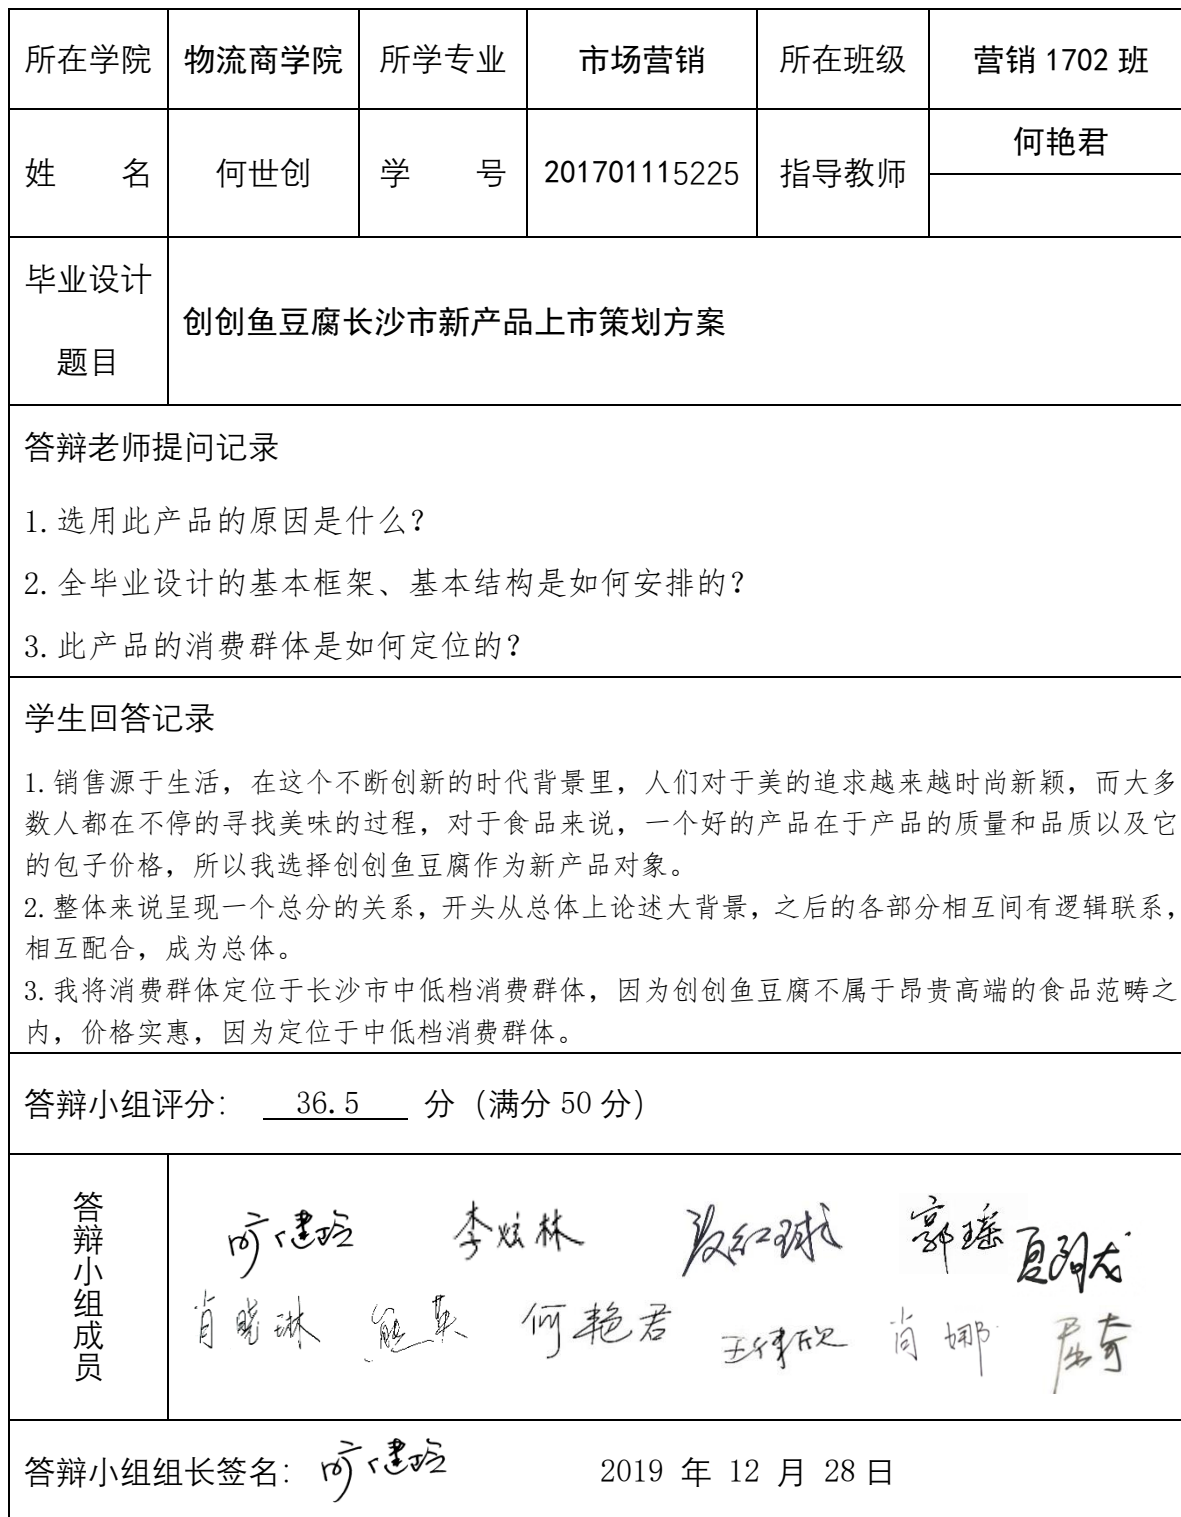 所在学院 物流商学院 所学专业 市场营销 所在班级 营销 1702 班
姓 名 何世创 学 号 201701115225 指导教师 何艳君
毕业设计
题目
创创鱼豆腐长沙市新产品上市策划方案
答辩老师提问记录
1.选用此产品的原因是什么?
2.全毕业设计的基本框架、基本结构是如何安排的?
3.此产品的消费群体是如何定位的?
学生回答记录
1.销售源于生活，在这个不断创新的时代背景里，人们对于美的追求越来越时尚新颖，而大多
数人都在不停的寻找美味的过程，对于食品来说，一个好的产品在于产品的质量和品质以及它
的包子价格，所以我选择创创鱼豆腐作为新产品对象。
2.整体来说呈现一个总分的关系，开头从总体上论述大背景，之后的各部分相互间有逻辑联系，
相互配合，成为总体。
3.我将消费群体定位于长沙市中低档消费群体，因为创创鱼豆腐不属于昂贵高端的食品范畴之
内，价格实惠，因为定位于中低档消费群体。
答辩小组评分： 36.5 分（满分 50 分）
答辩小组成员
李炫林 郭瑶
肖晓琳 熊英 何艳君 肖娜 屈奇
答辩小组组长签名： 2019 年 12 月 28 日